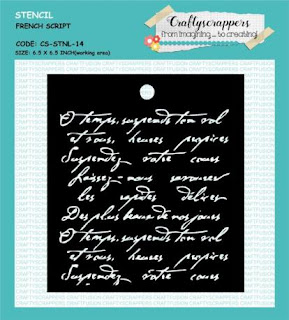 STENCIL
FRENCH SCRIPT
CODE: CS-STNL-14
SIZE: 6.5 X 6.5 INCH(working area)
Craftyscrappers
from imagining.... to creating!
O temps, suspends ton vol
et vous, heures propices
Suspendez votre cours
Laissez-nous savourer
les rapides délices
Des plus beaux de nos jours
O temps, suspends ton vol
et vous, heures propices
Suspendez votre cours